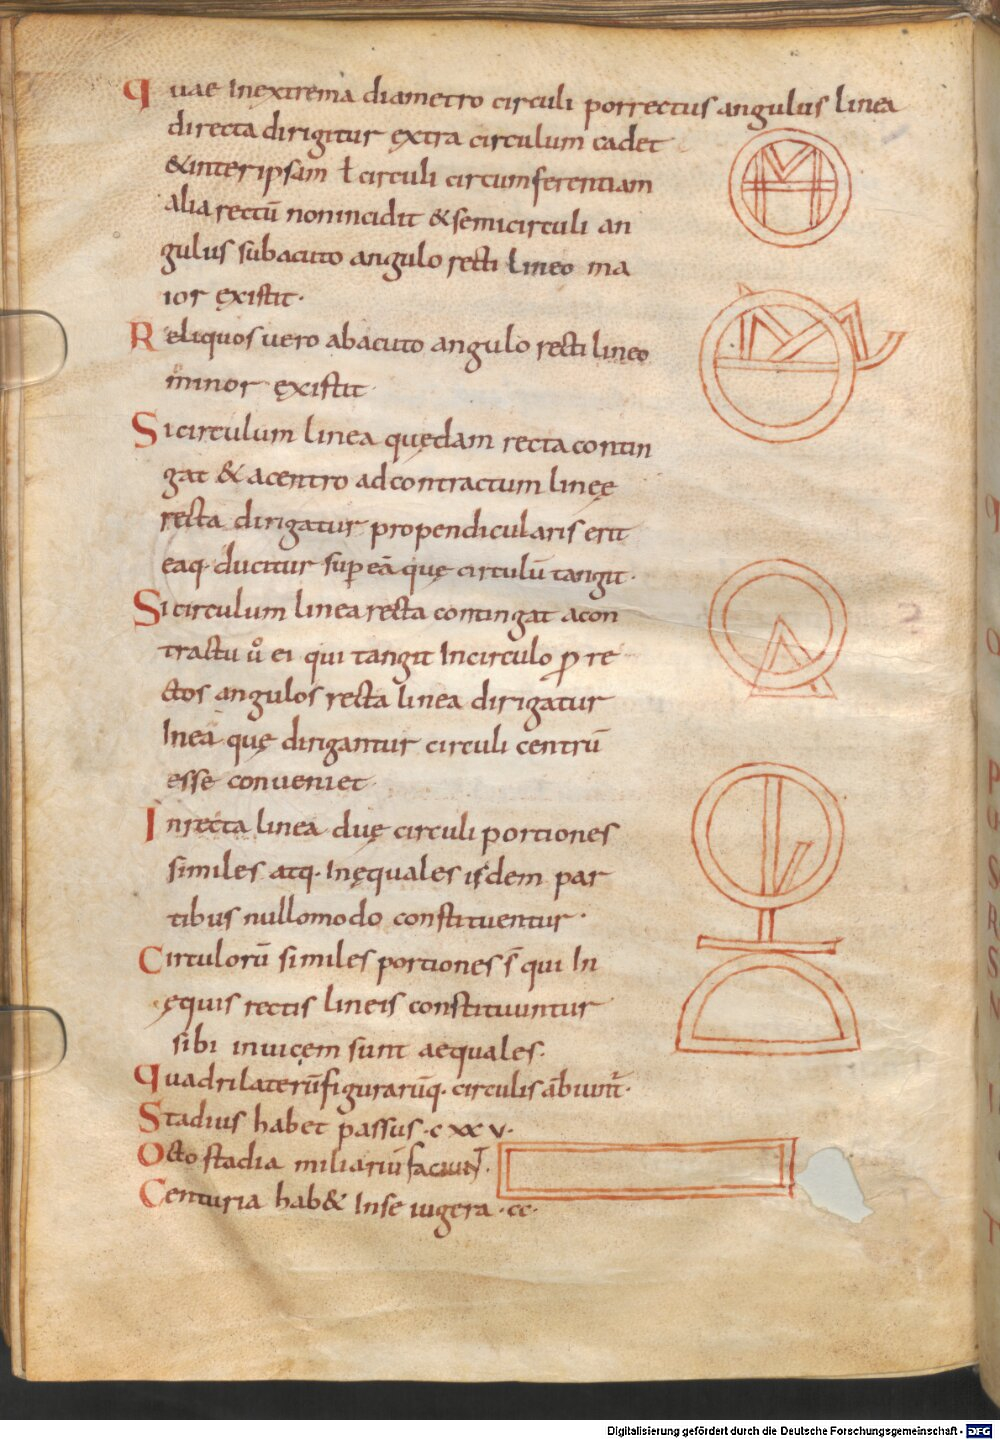 Quae Inextrema diametro circuli porrectus angulus linea
directa dirigitur ęxtra circulum cadet
&interipsam ł circuli circumferentiam
alia rectū nonincidit &semicirculi an
gulus subacuto angulo recti lineo ma
ior ęxistit·
Reliquos uero abacuto angulo recti lineo
minor ęxistit·
Sicirculum linea quędam recta contin
gat & acentro adcontractum linęę
recta dirigatur propendicularis erit
eaq· ducitur sup eā quę circulū tangit·
Sicirculum linea recta contingat acon
tractu ů ei qui tangit Incirculo ꝑ re
ctos angulos recta linea dirigatur
Ineā quę dirigantur circuli centrū
esse conueniet·
Inrecta linea duę circuli portiones
similes atq· Inęquales isdem par
tibus nullomodo constituentur·
Circulorū similes portiones s̄ qui In
ęquis rectis lineis constituuntur
sibi inuicęm sunt aequales·
Quadrilaterūfigurarūq· circulis
Stadius habet passus·cxxv·
Octo stadia miliariū faciunt·
Centuria hab& Inse iugera·cc·
Digitalisierung gefördert durch die Deutsche Forschungsgemeinschaft - DFG